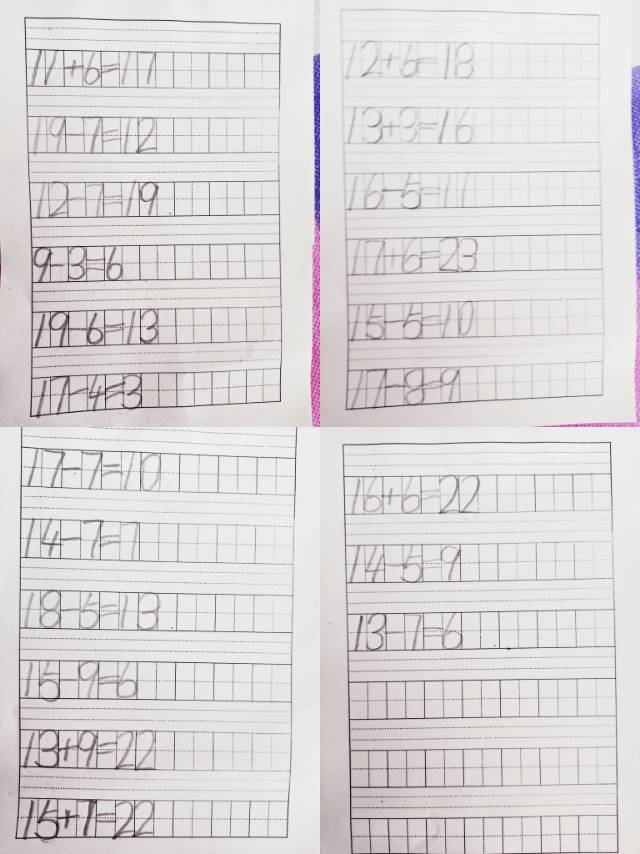 11+6=17
19-7=12
12-7=19
9-3=6
19-6=13
17-4=3
12+6=18
13+3=16
16-5=11
17+6=23
15-5=10
17-8=9
17-7=10
14-7=7
18-5=13
15-9=6
13+9=22
15+7=22
16+6=22
14-5=9
13-7=6